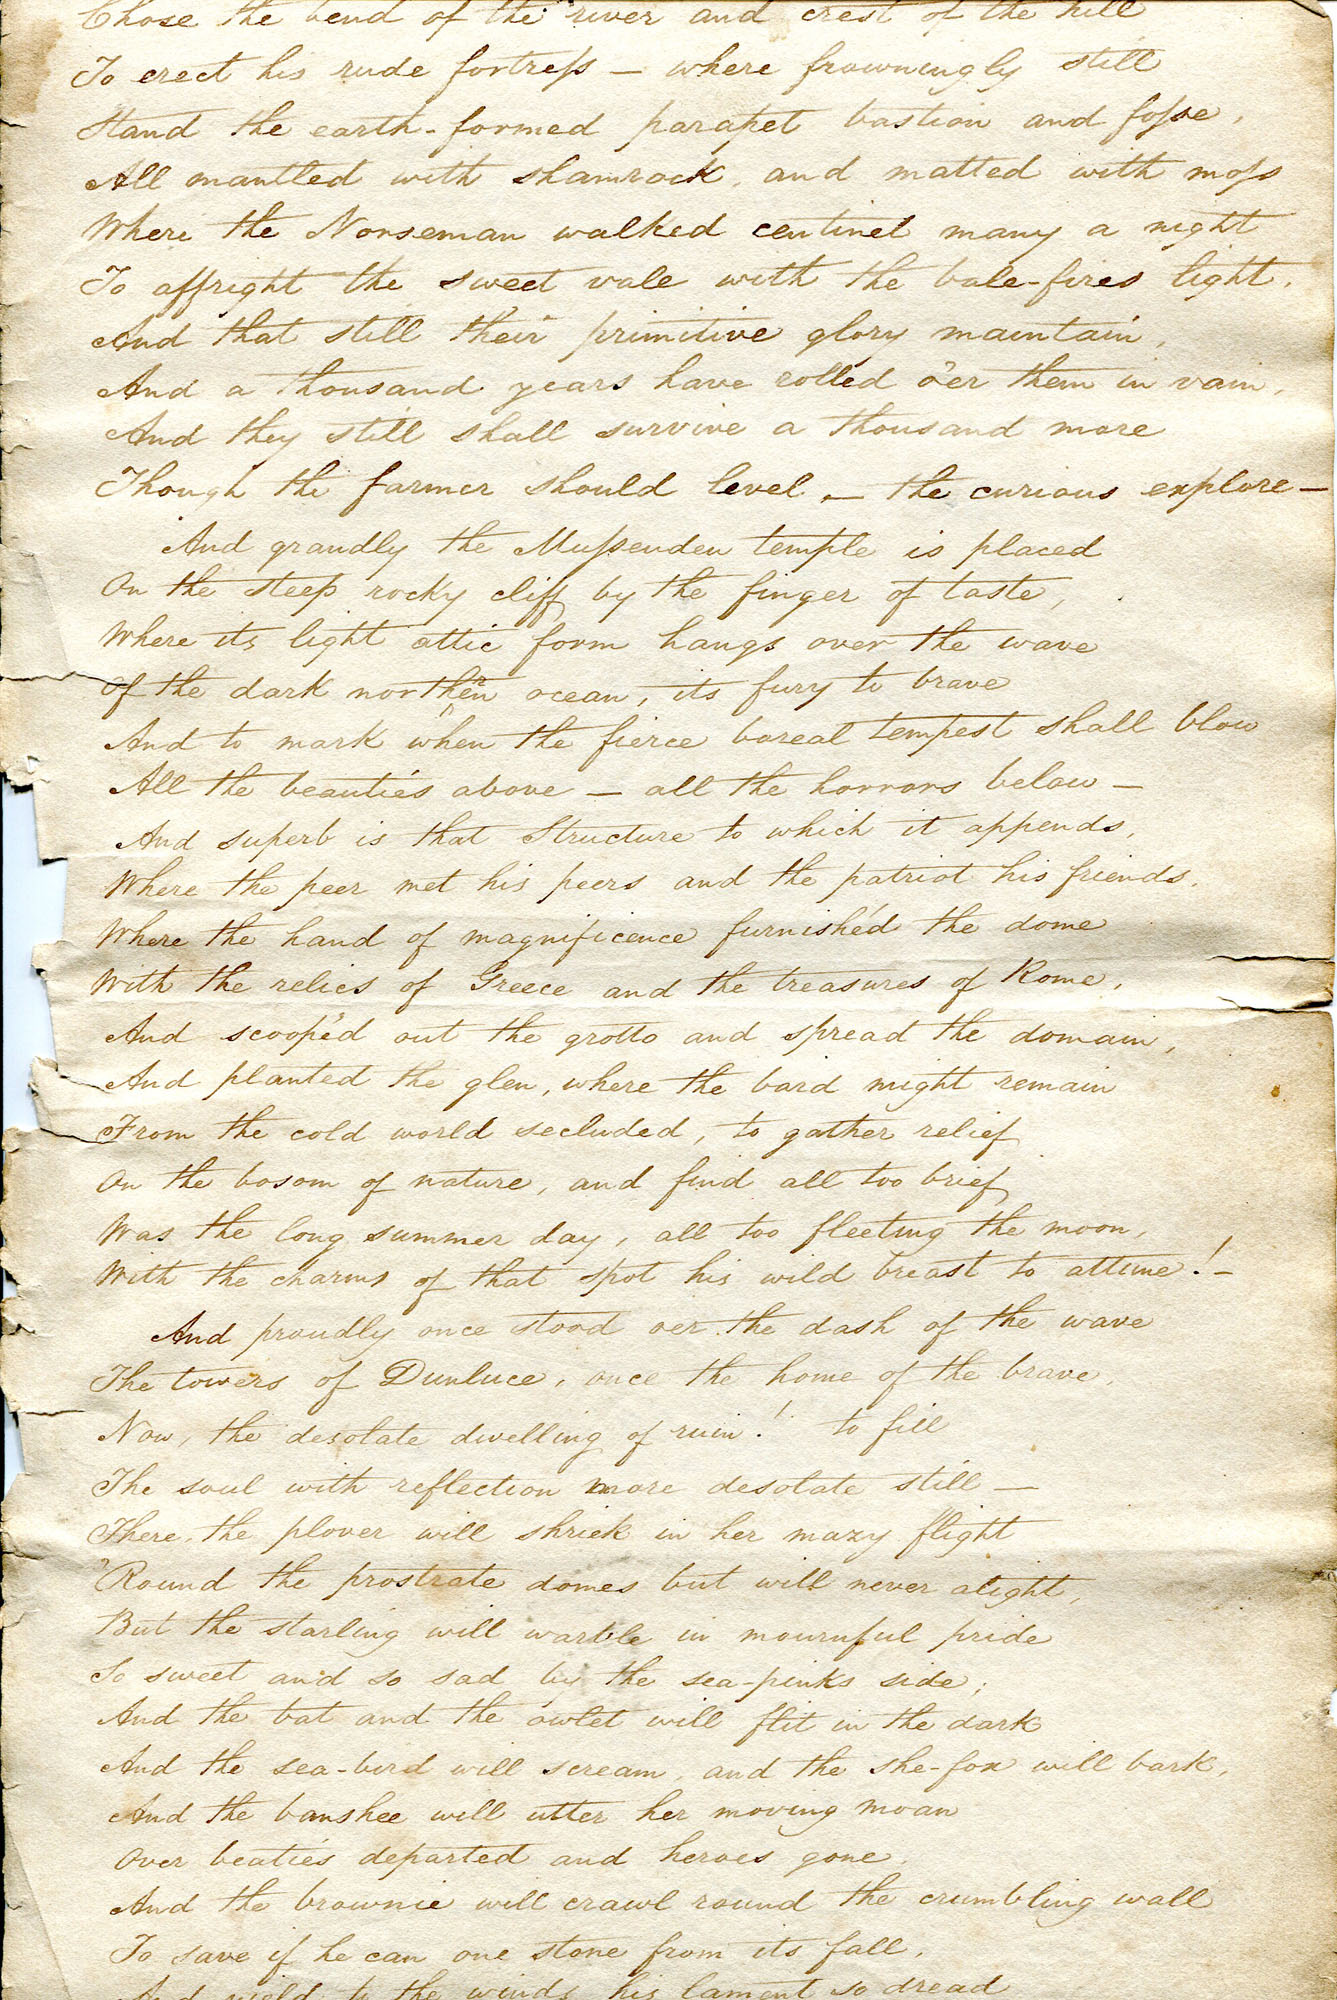 Chose the bend of the river and crest of the hill
To erect his rude fortreſs — where frowningly still
Stand the earth-formed parapet bastion and foſse,
All mantled with shamrock, and matted with moſs
Where the Norseman walked centinel many a night
To affright the sweet vale with the bale-fires light,
And that still their primitive glory maintain,
And a thousand years have rolled o'er them in vain,
And they still shall survive a thousand more
Though the farmer should level, — the curious explore —
And grandly the Muſsenden temple is placed
On the steep rocky cliff by the finger of taste,
Where its light attic form hangs over the wave
Of the dark northern ocean, its fury to brave
And to mark when the fierce boreal tempest shall blow
All the beauties above — all the horrors below —
And superb is that Structure to which it appends,
Where the peer met his peers and the patriot his friends,
Where the hand of magnificence furnish'd the dome
With the relics of Greece and the treasures of Rome,
And scoop'd out the grotto and spread the domain,
And planted the glen, where the bard might remain
From the cold world secluded, to gather relief
On the bosom of nature, and find all too brief
Was the long summer day, all too fleeting the moon,
With the charms of that spot his wild breast to attune! —
And proudly once stood oer the dash of the wave
The towers of Dunluce, once the home of the brave,
Now, the desolate dwelling of ruin! to fill
The soul with reflection more desolate still —
There, the plover will shriek in her mazy flight
'Round the prostrate domes but will never alight,
But the starling will warble in mournful pride
So sweet and so sad by the sea-pinks side;
And the bat and the owlet will flit in the dark
And the sea-bird will scream, and the she-fox will bark,
And the banshee will utter her moving moan
Over beaties departed and heroes gone,
And the brownie will crawl round the crumbling wall
To save if he can one stone from its fall,
And yield to the winds his lament so dread